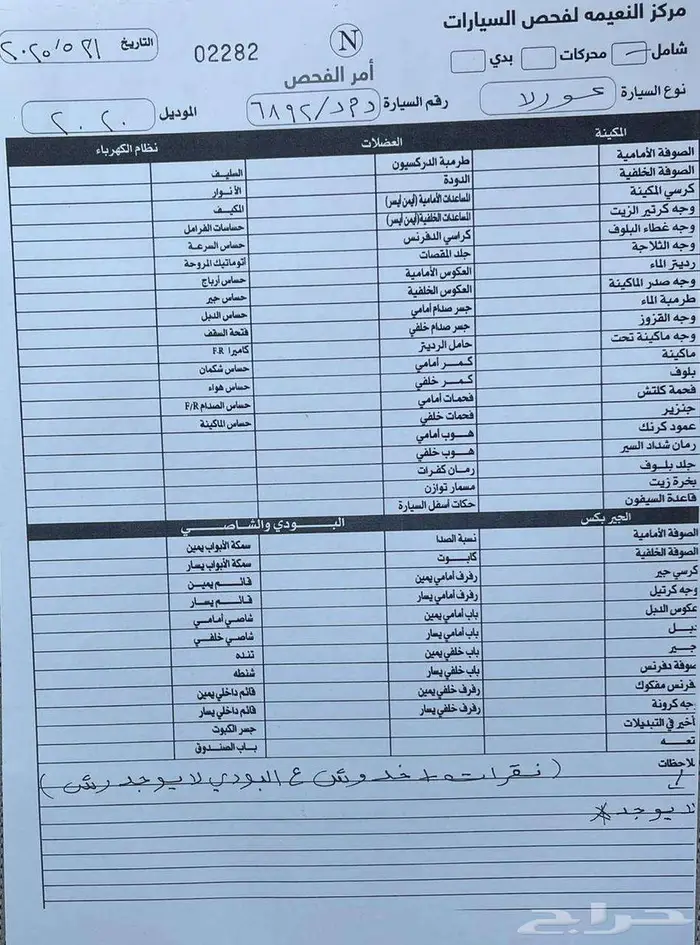 مركز النعيمه لفحص السيارات
شامل محركات بدي
N
02282
التاريخ ٢٠٢٥/٥/٢١
أمر الفحص
نوع السيارة كورلا
رقم السيارة ٦٨٩٢
الموديل ٢٠٢٠
المكينة العضلات نظام الكهرباء
الصوفة الأمامية طرمبة الدركسيون السليف
الصوفة الخلفية الدودة الأنوار
كرسي المكينة المساعدات الأمامية (أيمن أيسر) المكيف
وجه كرتير الزيت المساعدات الخلفية (أيمن أيسر) حساسات الفرامل
وجه غطاء البلوف كراسي الدفرنس حساس السرعة
وجه الثلاجة جلد المقصات أتوماتيك المروحة
رديتر الماء العكوس الأمامية حساس أرباج
وجه صدر الماكينة العكوس الخلفية حساس جير
طرمبة الماء جسر صدام أمامي حساس الدبل
وجه القزوز جسر صدام خلفي فتحة السقف
وجه ماكينة تحت حامل الرديتر كاميرا F.R
ماكينة كمر أمامي حساس شكمان
بلوف كمر خلفي حساس هواء
فحمة كلتش فحمات أمامي حساس الصدام F/R
جنزير فحمات خلفي حساس الماكينة
عمود كرنك هوب أمامي
رمان شداد السير هوب خلفي
جلد بلوف رمان كفرات
بخرة زيت مسمار توازن
قاعدة السيفون حكات أسفل السيارة
الجير بكس البودي والشاصي
الصوفة الأمامية نسبة الصدا سمكة الأبواب يمين
الصوفة الخلفية كابوت سمكة الأبواب يسار
كرسي جير رفرف أمامي يمين قائم يمين
وجه كرتيل رفرف أمامي يسار قائم يسار
عكوس الدبل باب أمامي يمين شاصي أمامي
دبل باب أمامي يسار شاصي خلفي
جير باب خلفي يمين تنده
صوفة دفرنس باب خلفي يسار شنطه
دفرنس مفكوك رفرف خلفي يمين قائم داخلي يمين
وجه كرونة رفرف خلفي يسار قائم داخلي يسار
تأخير في التبديلات جسر الكبوت
نتعه باب الصندوق
ملاحظات
( نقرات + خدوش ع البودي لا يوجد رش )
لا يوجد
حراج